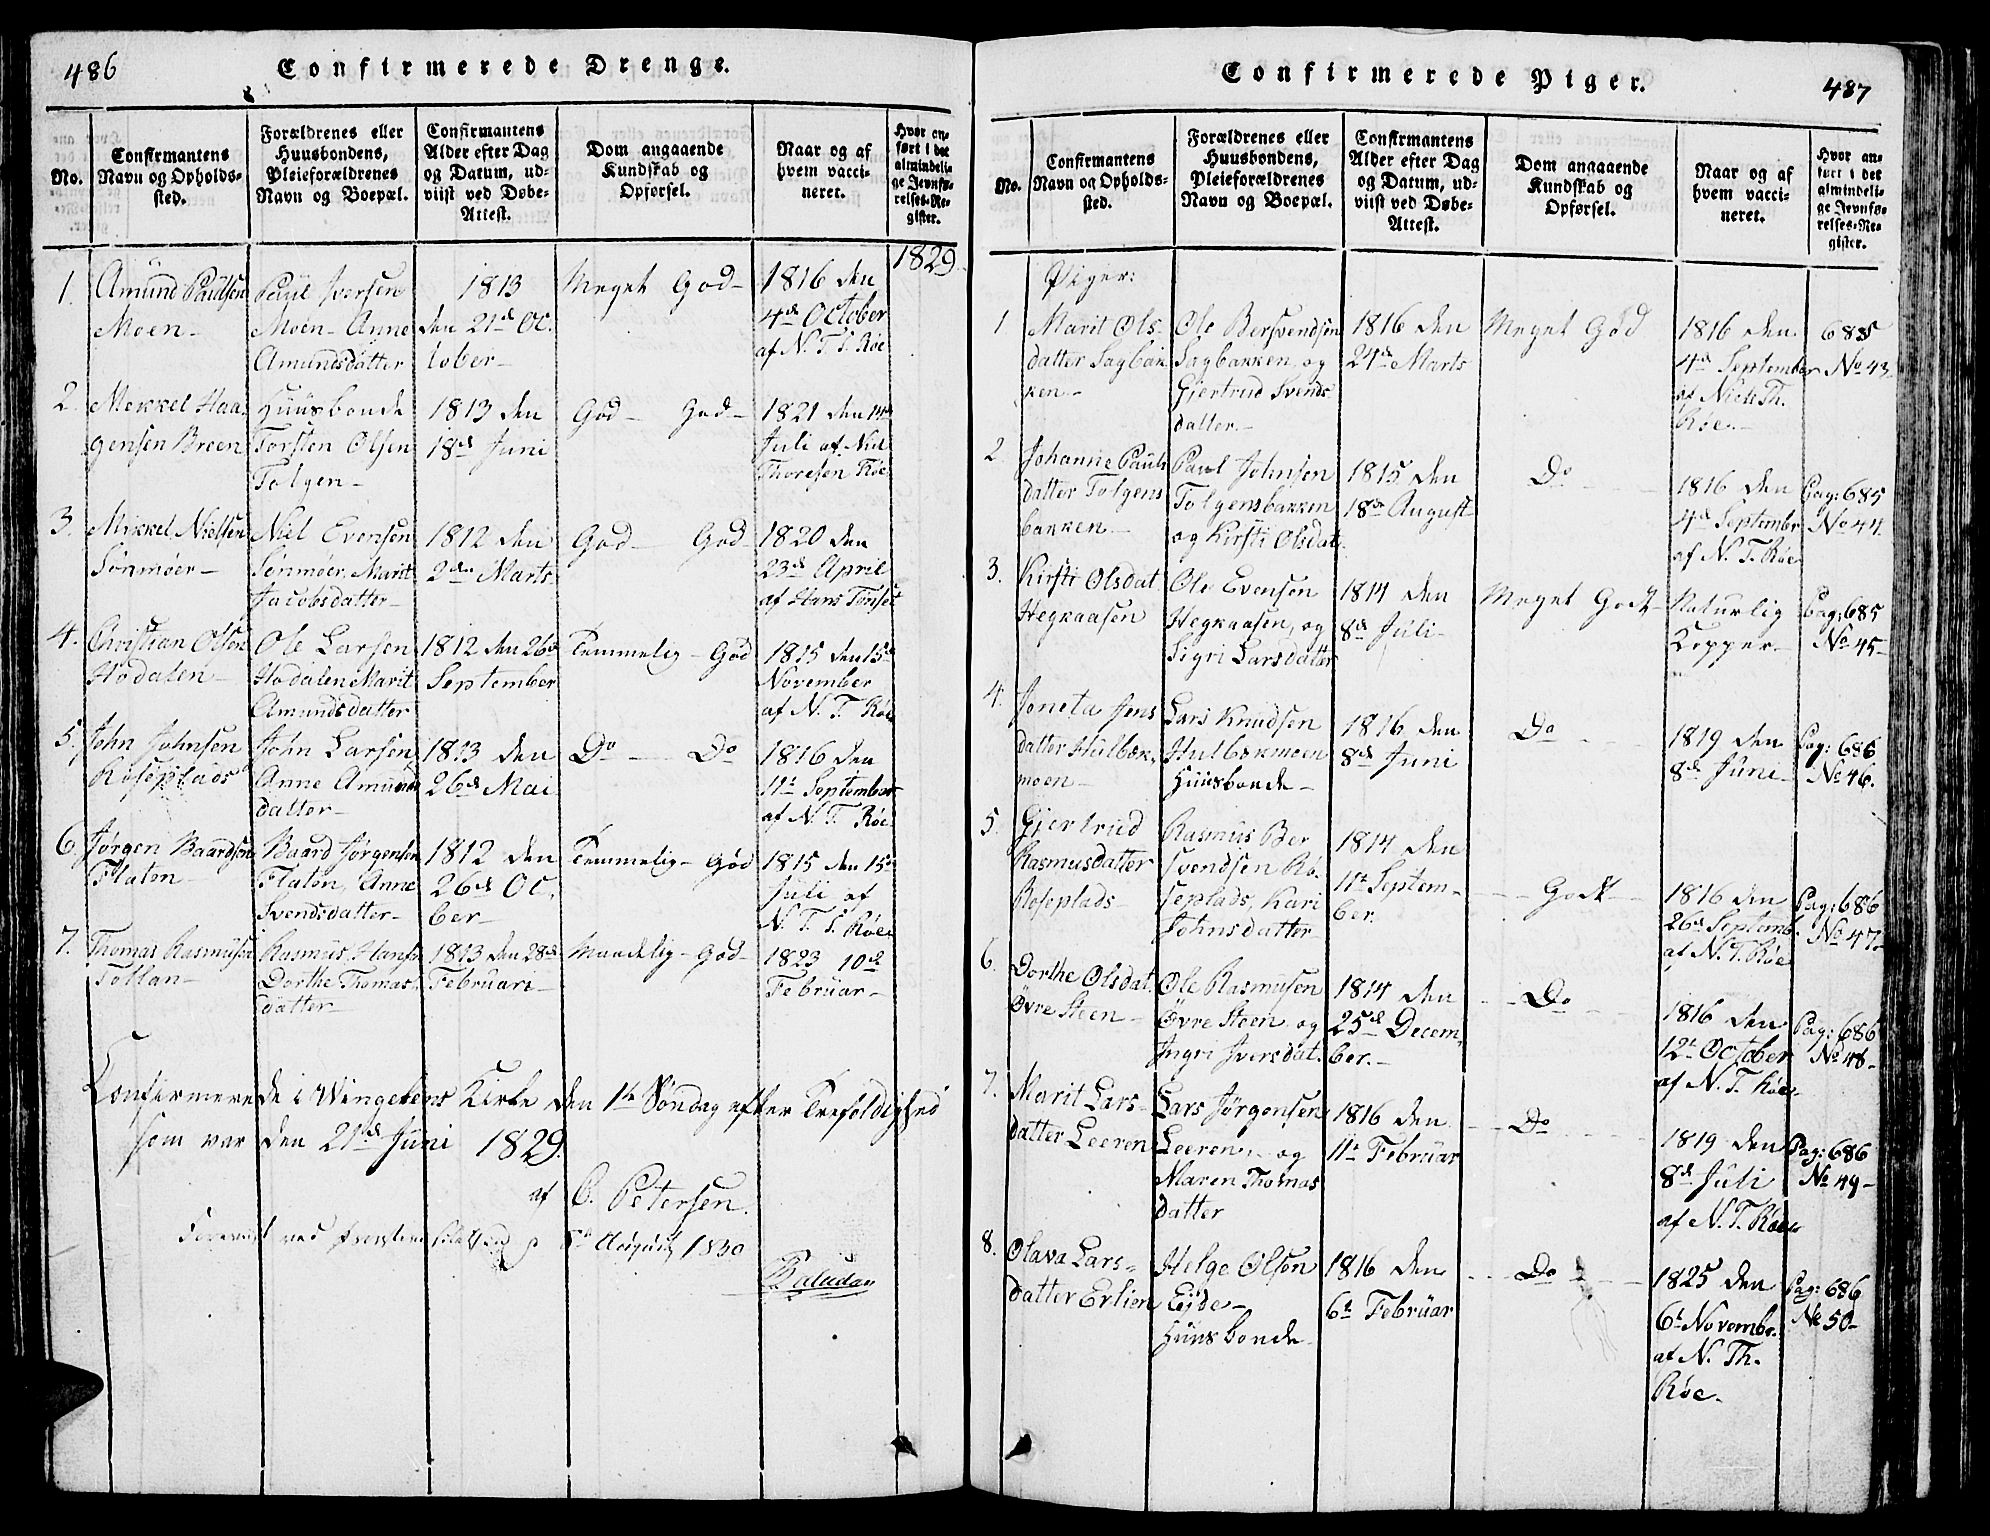 486
Confirmerede Drenge.
No.
Confirmantens
Navn og Opholds-
sted.
Forældrenes eller
Huusbondens,
Pleieforældrenes
Navn og Boepæl.
Confirmantens
Alder efter Dag
og Datum, ud-
viist ved Døbe-
Attest.
Dom angaaende
Kundskab og
Opførsel.
Naar og af
hvem vacci-
neret.
Hvor an-
ført i det
almindeli-
ge Jevnfø-
relses-Re-
gister.
1829
1.
Amund Paulsen
Moen-
Paul Iversen
Moen- Anne
Amundsdatter
1813
den 21de Oc.
tober-
Meget God-
1816 den
4de October
af N. T. S. Røe
2.
Mekkel Haa
gensen Breen
Huusbonde
Torsten Olsen
Tolgen-
1813 den
18de Juni
God- God-
1821 den 14de
Juli af Niel
Thoresen Røe
3.
Mikkel Nielsen
Sönmöer-
Niel Evensen
Senmöer, Marit
Jacobsdatter-
1812 den
2den Marts
God- God
1820 den
23de April
af Hans Tönset
4.
Christian Olsen
Hodalen-
Ole Larsen
Hodalen Marit
Amundsdatter
1812 den 26de
September
Temmelig- God
1815 den 15de
November
af N. T. Røe
5.
John Johnsen
Roseplads
John Larsen,
Anne Amunds
datter-
1813 den
26de Mai
Do - Do
1816 den
11te September
af N. T. Røe
6
Jørgen Baardsen
Flaten
Baard Jørgensen
Flaten, Anne
Svendsdatter-
1812 den
26de Oc.
ber-
Temmelig- God
1815 den 15de
Juli af
N. T. S. Røe
7.
Thomas Rasmusen
Tollan-
Rasmus Hans
Dorthe Thomas
datter-
1813 den 28de
Februari-
Maadelig- God-
1823 10de
Februar-
Confirmerede i Wingelens Kirke den 1te Søndag efter Trefoldighed
som var den 21de Juni 1829.
af C. Petersen.
August 1830
487
Confirmerede Piger.
No.
Confirmantens
Navn og Opholds-
sted.
Forældrenes eller
Huusbondens,
Pleieforældrenes
Navn og Boepæl.
Confirmantens
Alder efter Dag
og Datum, ud-
viist ved Døbe-
Attest.
Dom angaaende
Kundskab og
Opførsel.
Naar og af
hvem vacci-
neret.
Hvor an-
ført i det
almindeli-
ge Jevnfø-
relses-Re-
gister.
Piger:
1
Marit Ols-
datter Sagbak
ken-
Ole Bersvendsen
Sagbakken, og
Gjertrud Svends
datter.-
1816 den
24de Marts
Meget God
1816 den
4de September
af Niels Th.
Röe.-
685
No 43.
2
Johanne Pauls
datter Tolgens
bakken-
Paul Johnsen
Tolgensbakken
og Kirsti Olsdat.
1815 den
18de August
Do
1816 den
4de Septembr
af N. T. Røe
Pag: 685
No 44.
3.
Kirsti Olsdat
Hegraasen
Ole Evensen
Hegraasen, og
Sigri Larsdatter
1814 den
8de Juli-
Meget Godt-
Naturlig
Kopper-
Pag: 685
No 45-
4.
Joneta Jens
datter Hulbek,
moen-
Lars Knudsen
Hulbækmoen
Huusbonde-
1816 den
8de Juni
Do
1819 den
8de Juni-
Pag: 686
No 46.
5.
Gjertrud
Rasmusdatter
Roseplads-
Rasmus Ber
svendsen Ro.
seplads, Kari
Johnsdatter
1814 den
11te Septem-
ber.
- Godt -
1816 den
26de Septemb.
af N. T. Røe
Pag: 686
No 47.
6.
Dorthe Olsdat.
Övre Steen-
Ole Rasmusen
Övre Steen og
Ingri Iversdat.
1814 den
25de Decem,
ber.-
- Do
1816 den
12te October
af N. T. Røe-
Pag: 686
No 48-
7.
Marit Lars-
datter Leeren
Lars Jørgensen
Leeren,- og
Maren Thomas
datter
1816 den
11te Februar
- Do
1819 den
8de Juli
af N. T. Røe
Pag: 686
No 49-
8.
Olava Lars=
datter Erlien
Helge Olsen
Eide-
Huusbonde-
1816 den
6te Februar
- Do -
1825 den
6te Novembr.
af N. Th.
Röe-
Pag: 686
No 50-